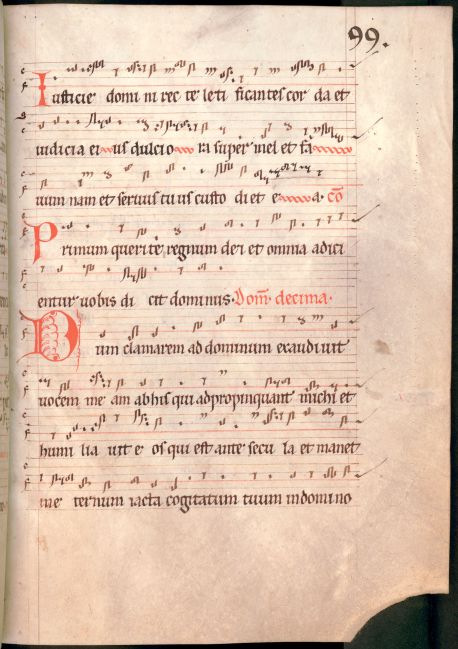 99.
Iusticie domi ni rec te leti ficantes cor da et
iudicia ei us dulcio ra super mel et fa
uum nam et seruus tuus custo di et e a. cō
Primum querite regnum dei et omnia adici
entur uobis di cit dominus. Dom̄. decima.
Dum clamarem ad dominum exaudiuit
uocem me am ab his qui adpropinquant michi et
humi lia uit e os qui est ante secu la et manet
in e ternum iacta cogitatum tuum in domino